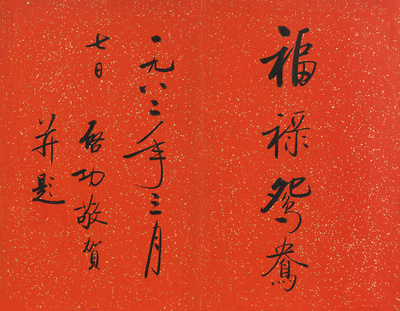 福禄鸳鸯
一九八二年三月
七日 启功敬贺
并题